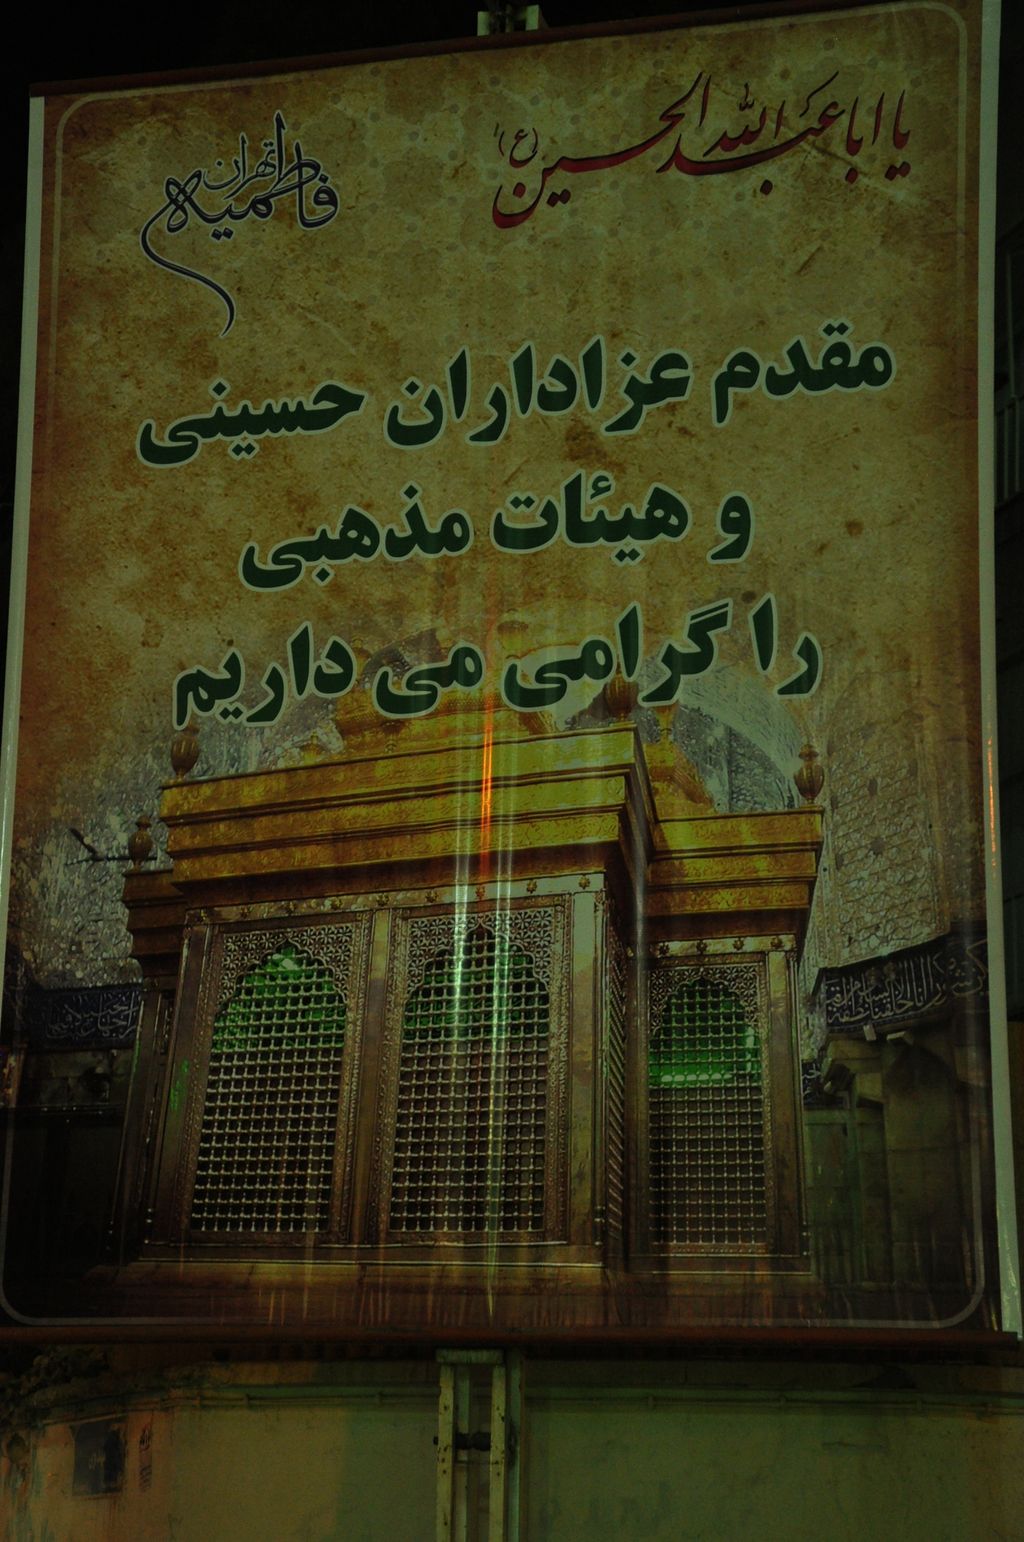 یا اباعبدالله الحسین (ع)
فاطمیه تهران
مقدم عزاداران حسینی
و هیئات مذهبی
را گرامی می داریم